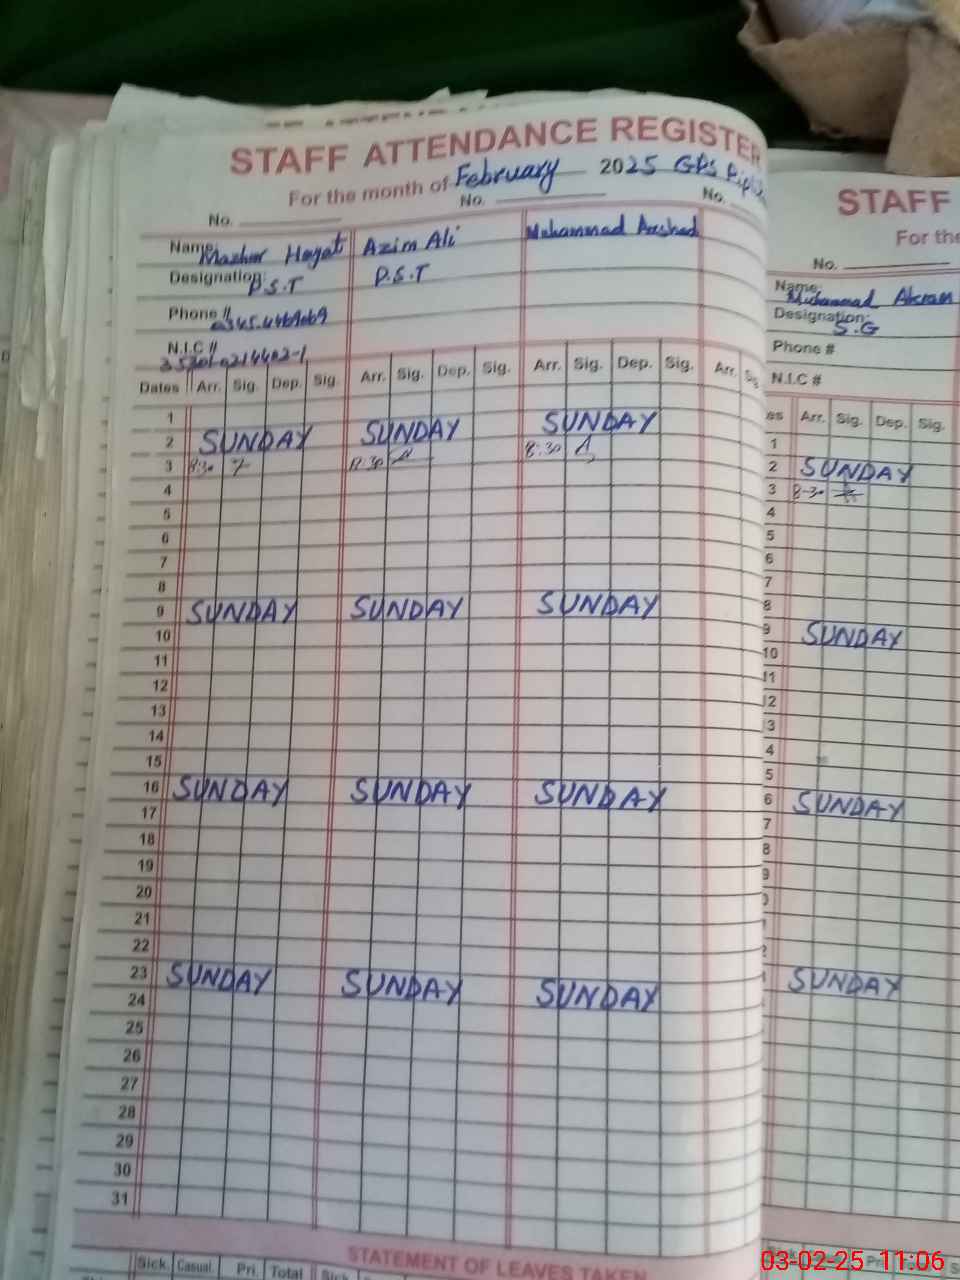 STAFF ATTENDANCE REGISTER
For the month of February 2025 GPS
No. No. No.
Name: Mazhar Hayat Azim Ali Muhammad Arshad
Designation: P.S.T P.S.T
Phone #
N.I.C #
Dates Arr. Sig. Dep. Sig. Arr. Sig. Dep. Sig. Arr. Sig. Dep. Sig. Arr.
1
2 SUNDAY SUNDAY SUNDAY
3 8:30 8:30
4
5
6
7
8
9 SUNDAY SUNDAY SUNDAY
10
11
12
13
14
15
16 SUNDAY SUNDAY SUNDAY
17
18
19
20
21
22
23 SUNDAY SUNDAY SUNDAY
24
25
26
27
28
29
30
31
STATEMENT OF LEAVES TAKEN
Sick. Casual. Pri. Total Sick.
STAFF
For the
No.
Name: Muhammad Akram
Designation: S.G
Phone #
N.I.C #
Arr. Sig. Dep. Sig.
1
2 SUNDAY
3 8-30
4
5
6
7
8
9 SUNDAY
10
11
12
13
4
5
6 SUNDAY
7
8
9
SUNDAY
03-02-25 11:06